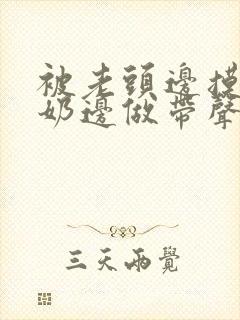 被老頭邊摸
奶邊做帶聲
三天兩覺